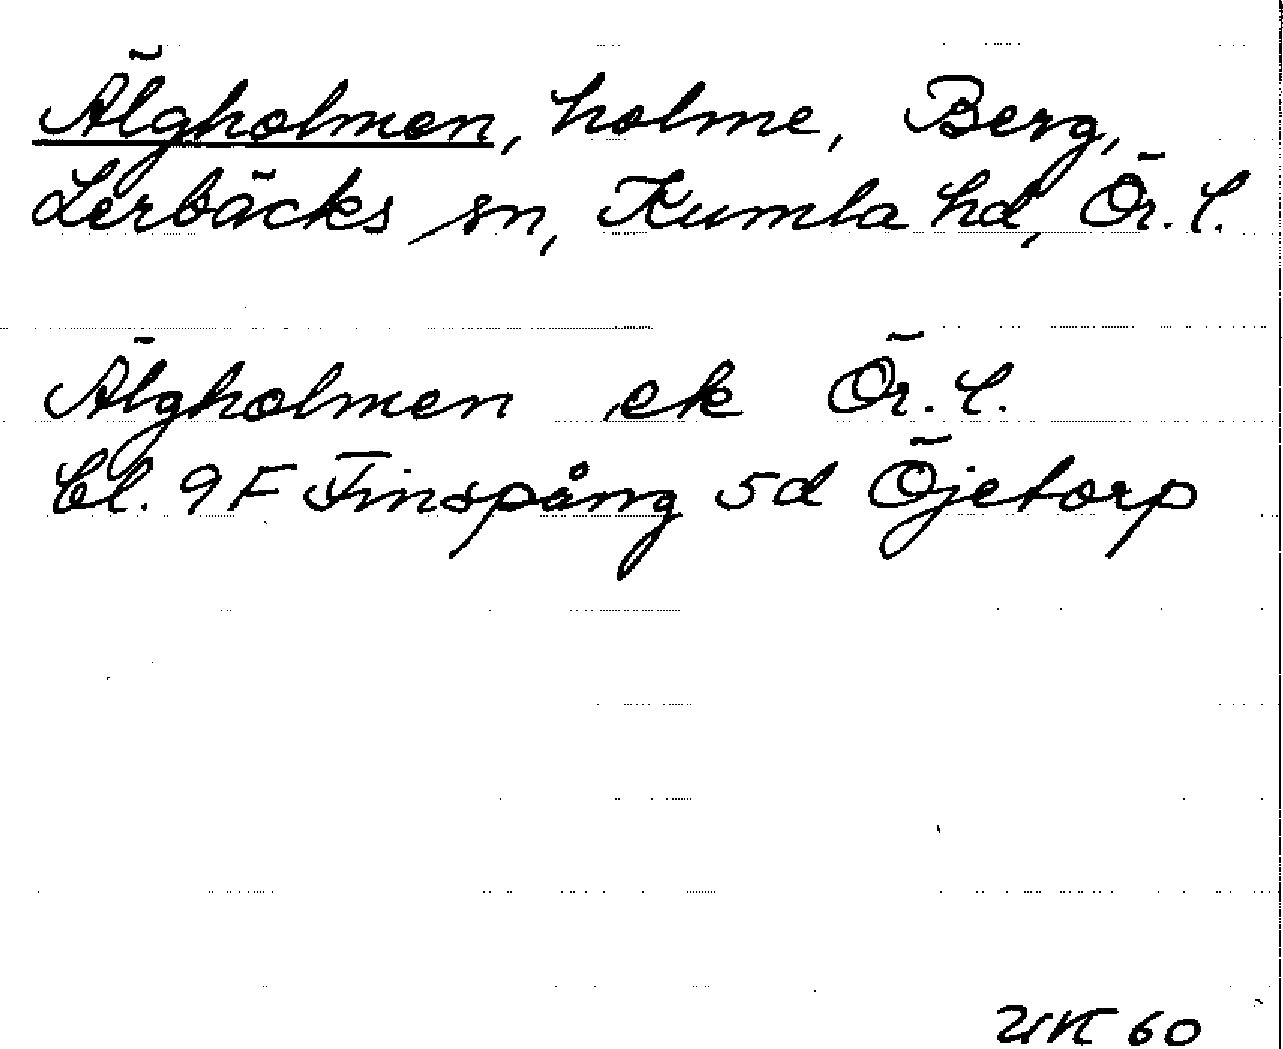 Älgholmen, holme, Berg,
Lerbäcks sn, Kumla hd, Ör. l.
Älgholmen ek Ör. l.
bl. 9F Finspång 5d Öjetorp
60